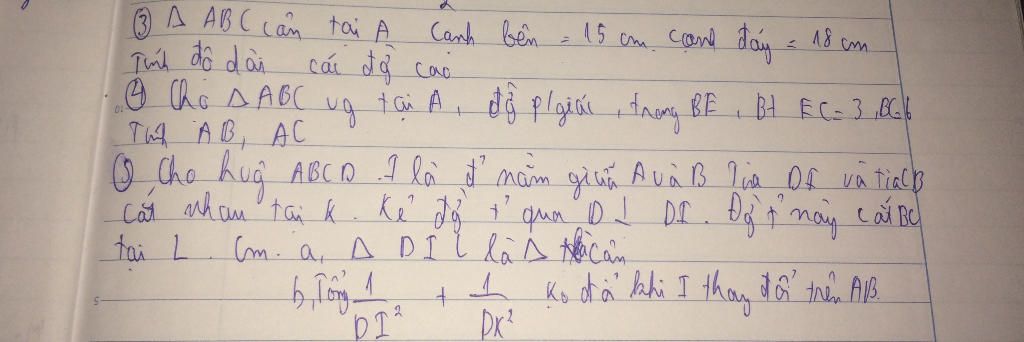 ③ Δ ABC cân tại A cạnh bên = 15 cm. cạnh đáy = 18 cm
Tính độ dài các đg cao
④ Cho ΔABC vg tại A, đg p/giác, trong BE, Bt EC = 3, BC = 6
Tính AB, AC
⑤ Cho hvg ABCD. I là đ' nằm giữa A và B Tia DI và tia CB
cắt nhau tại K. Kẻ đg t' qua D ⊥ DI. Đg t' này cắt BC
tại L. Cm. a, Δ DIL là Δ cân
b, Tổng 1/DI² + 1/DK² ko đổi khi I thay đổi trên AB.